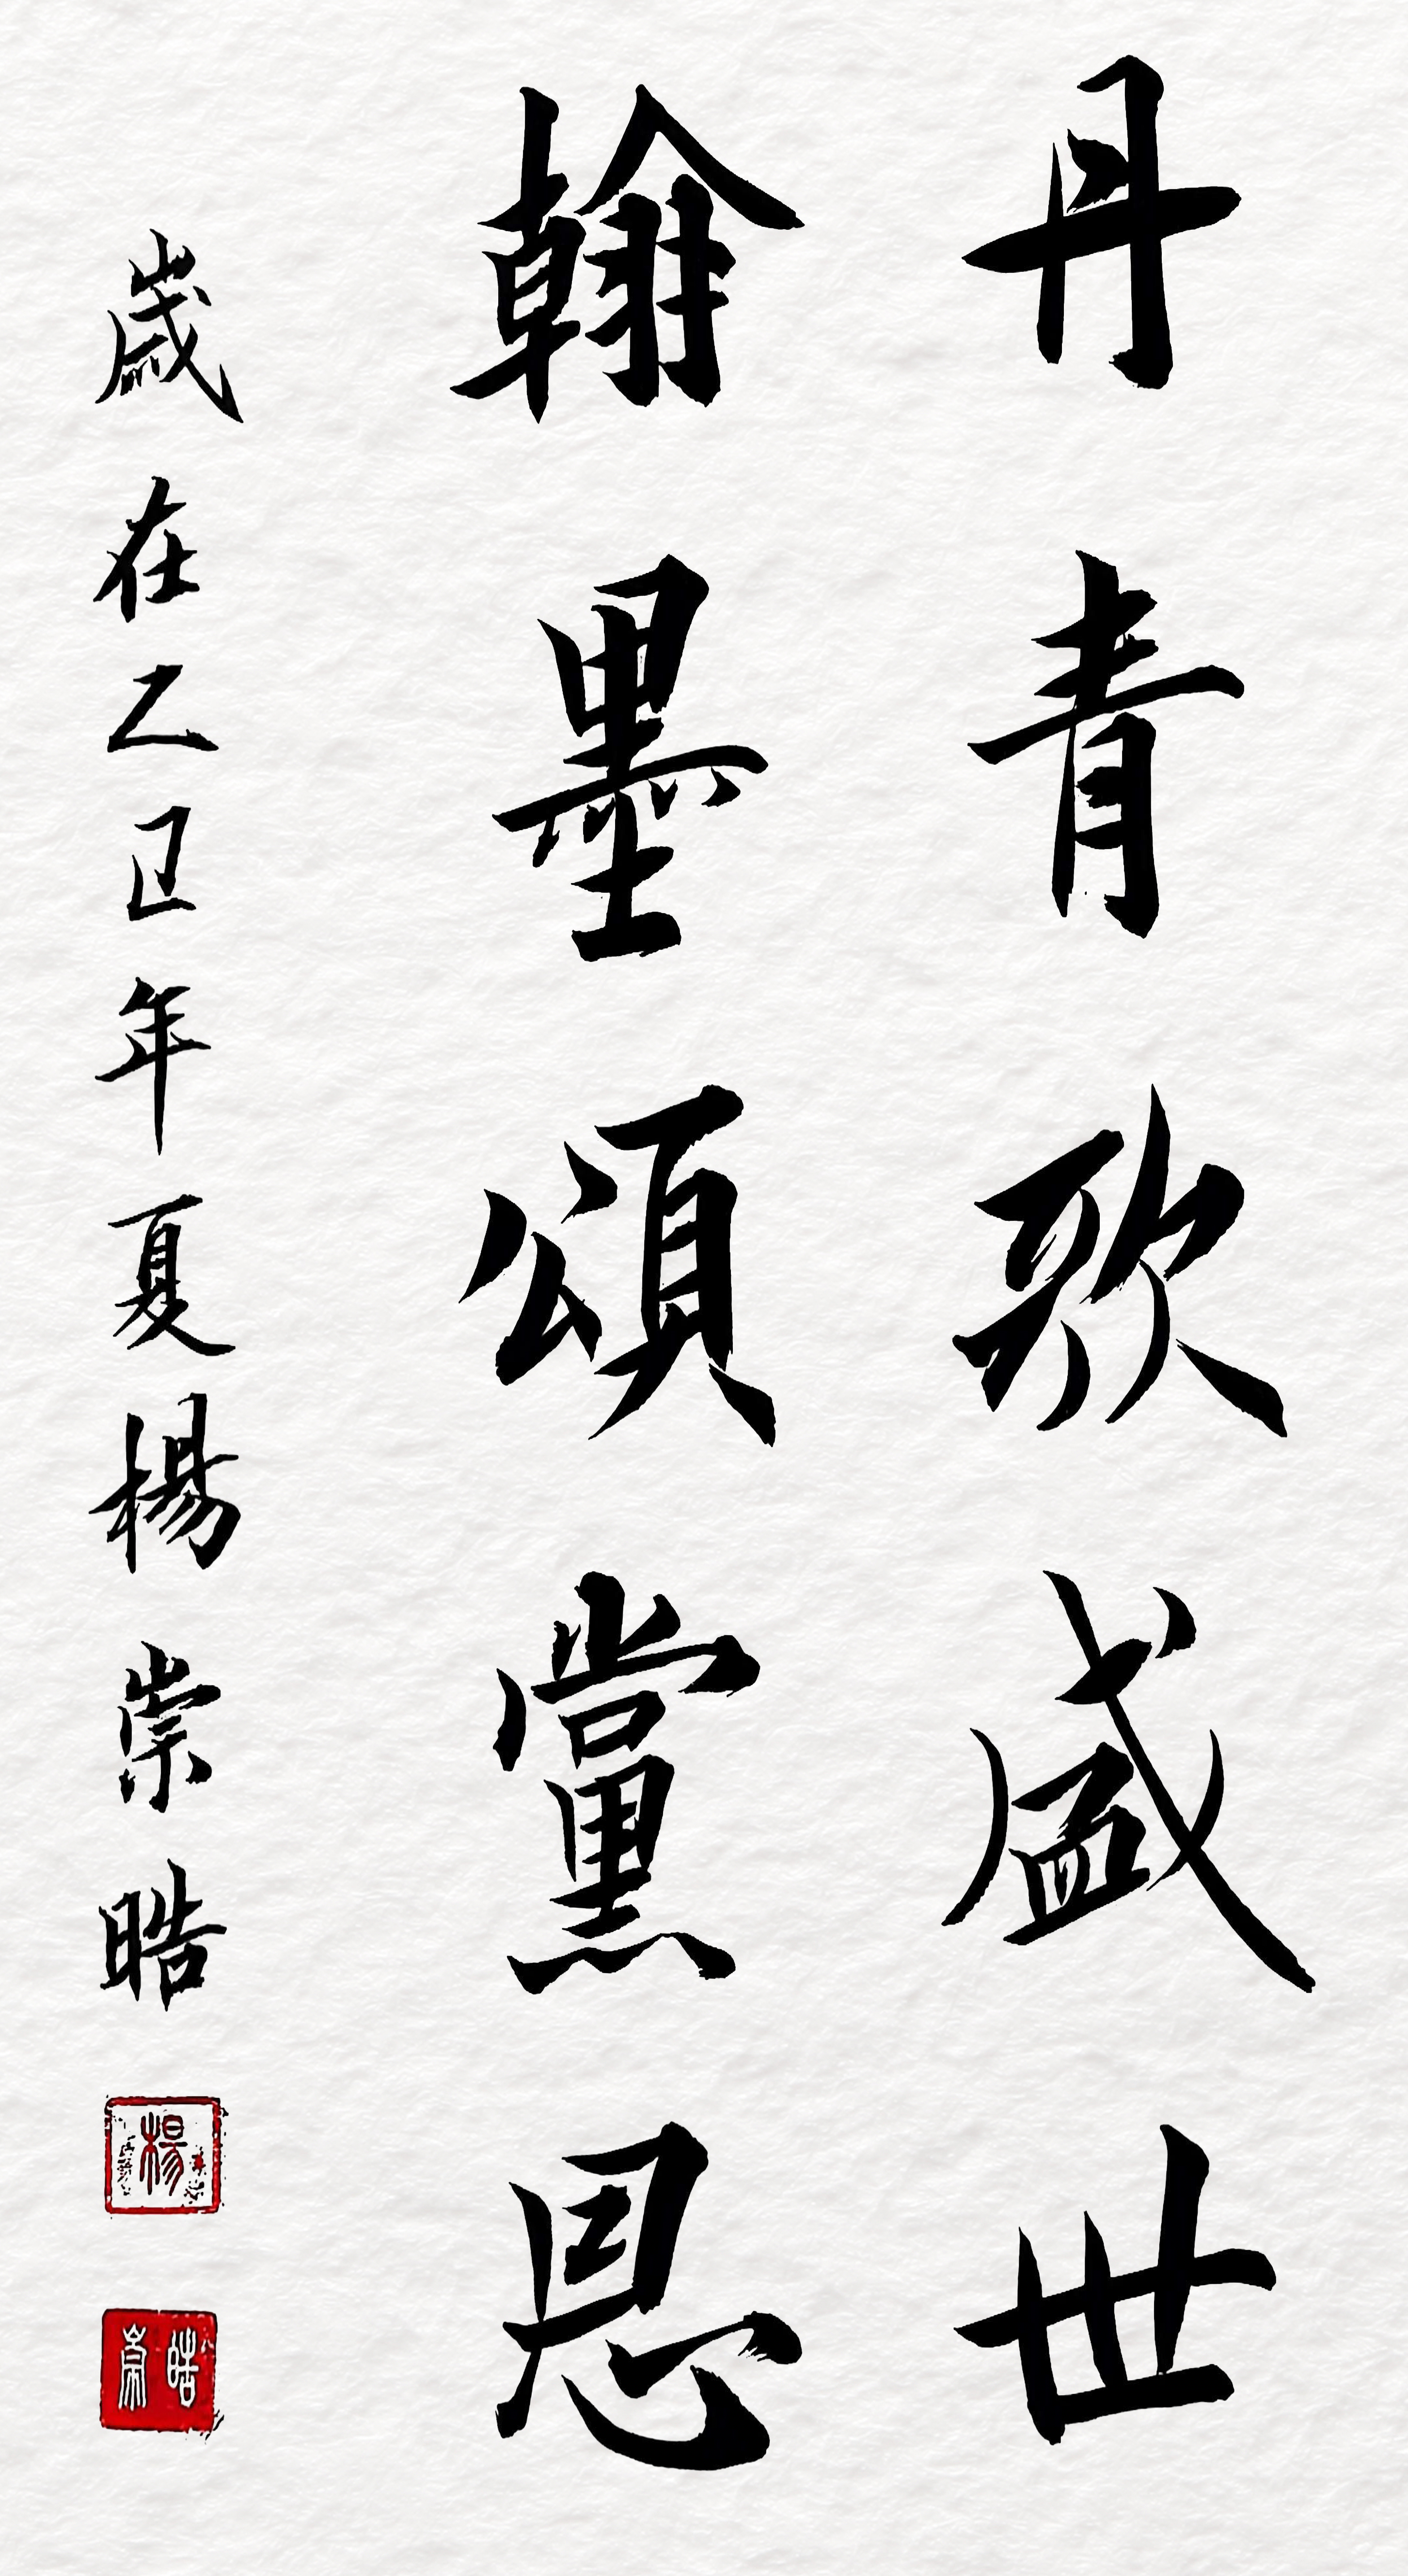 丹青歌盛世
翰墨頌黨恩
歲在乙巳年夏楊崇晧
楊
崇晧